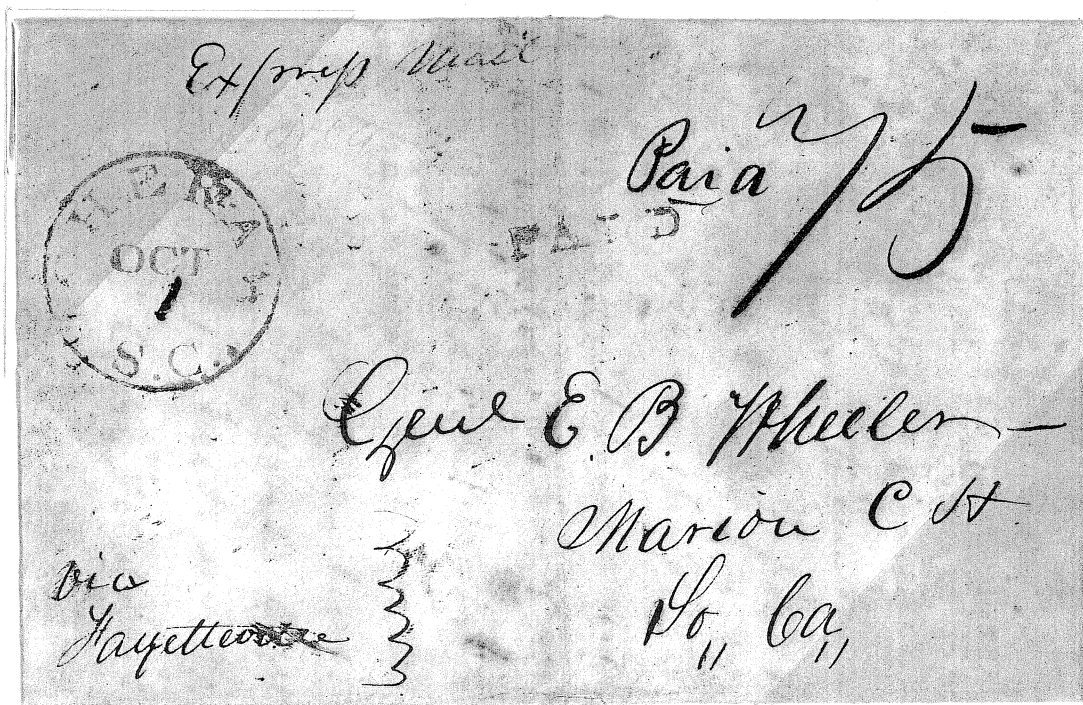 Express Mail
CHERAW
OCT
1
S.C.
Paid 75
PAID
Genl E. B. Wheeler
Marion C H
So,, Ca,,
via
Fayetteville